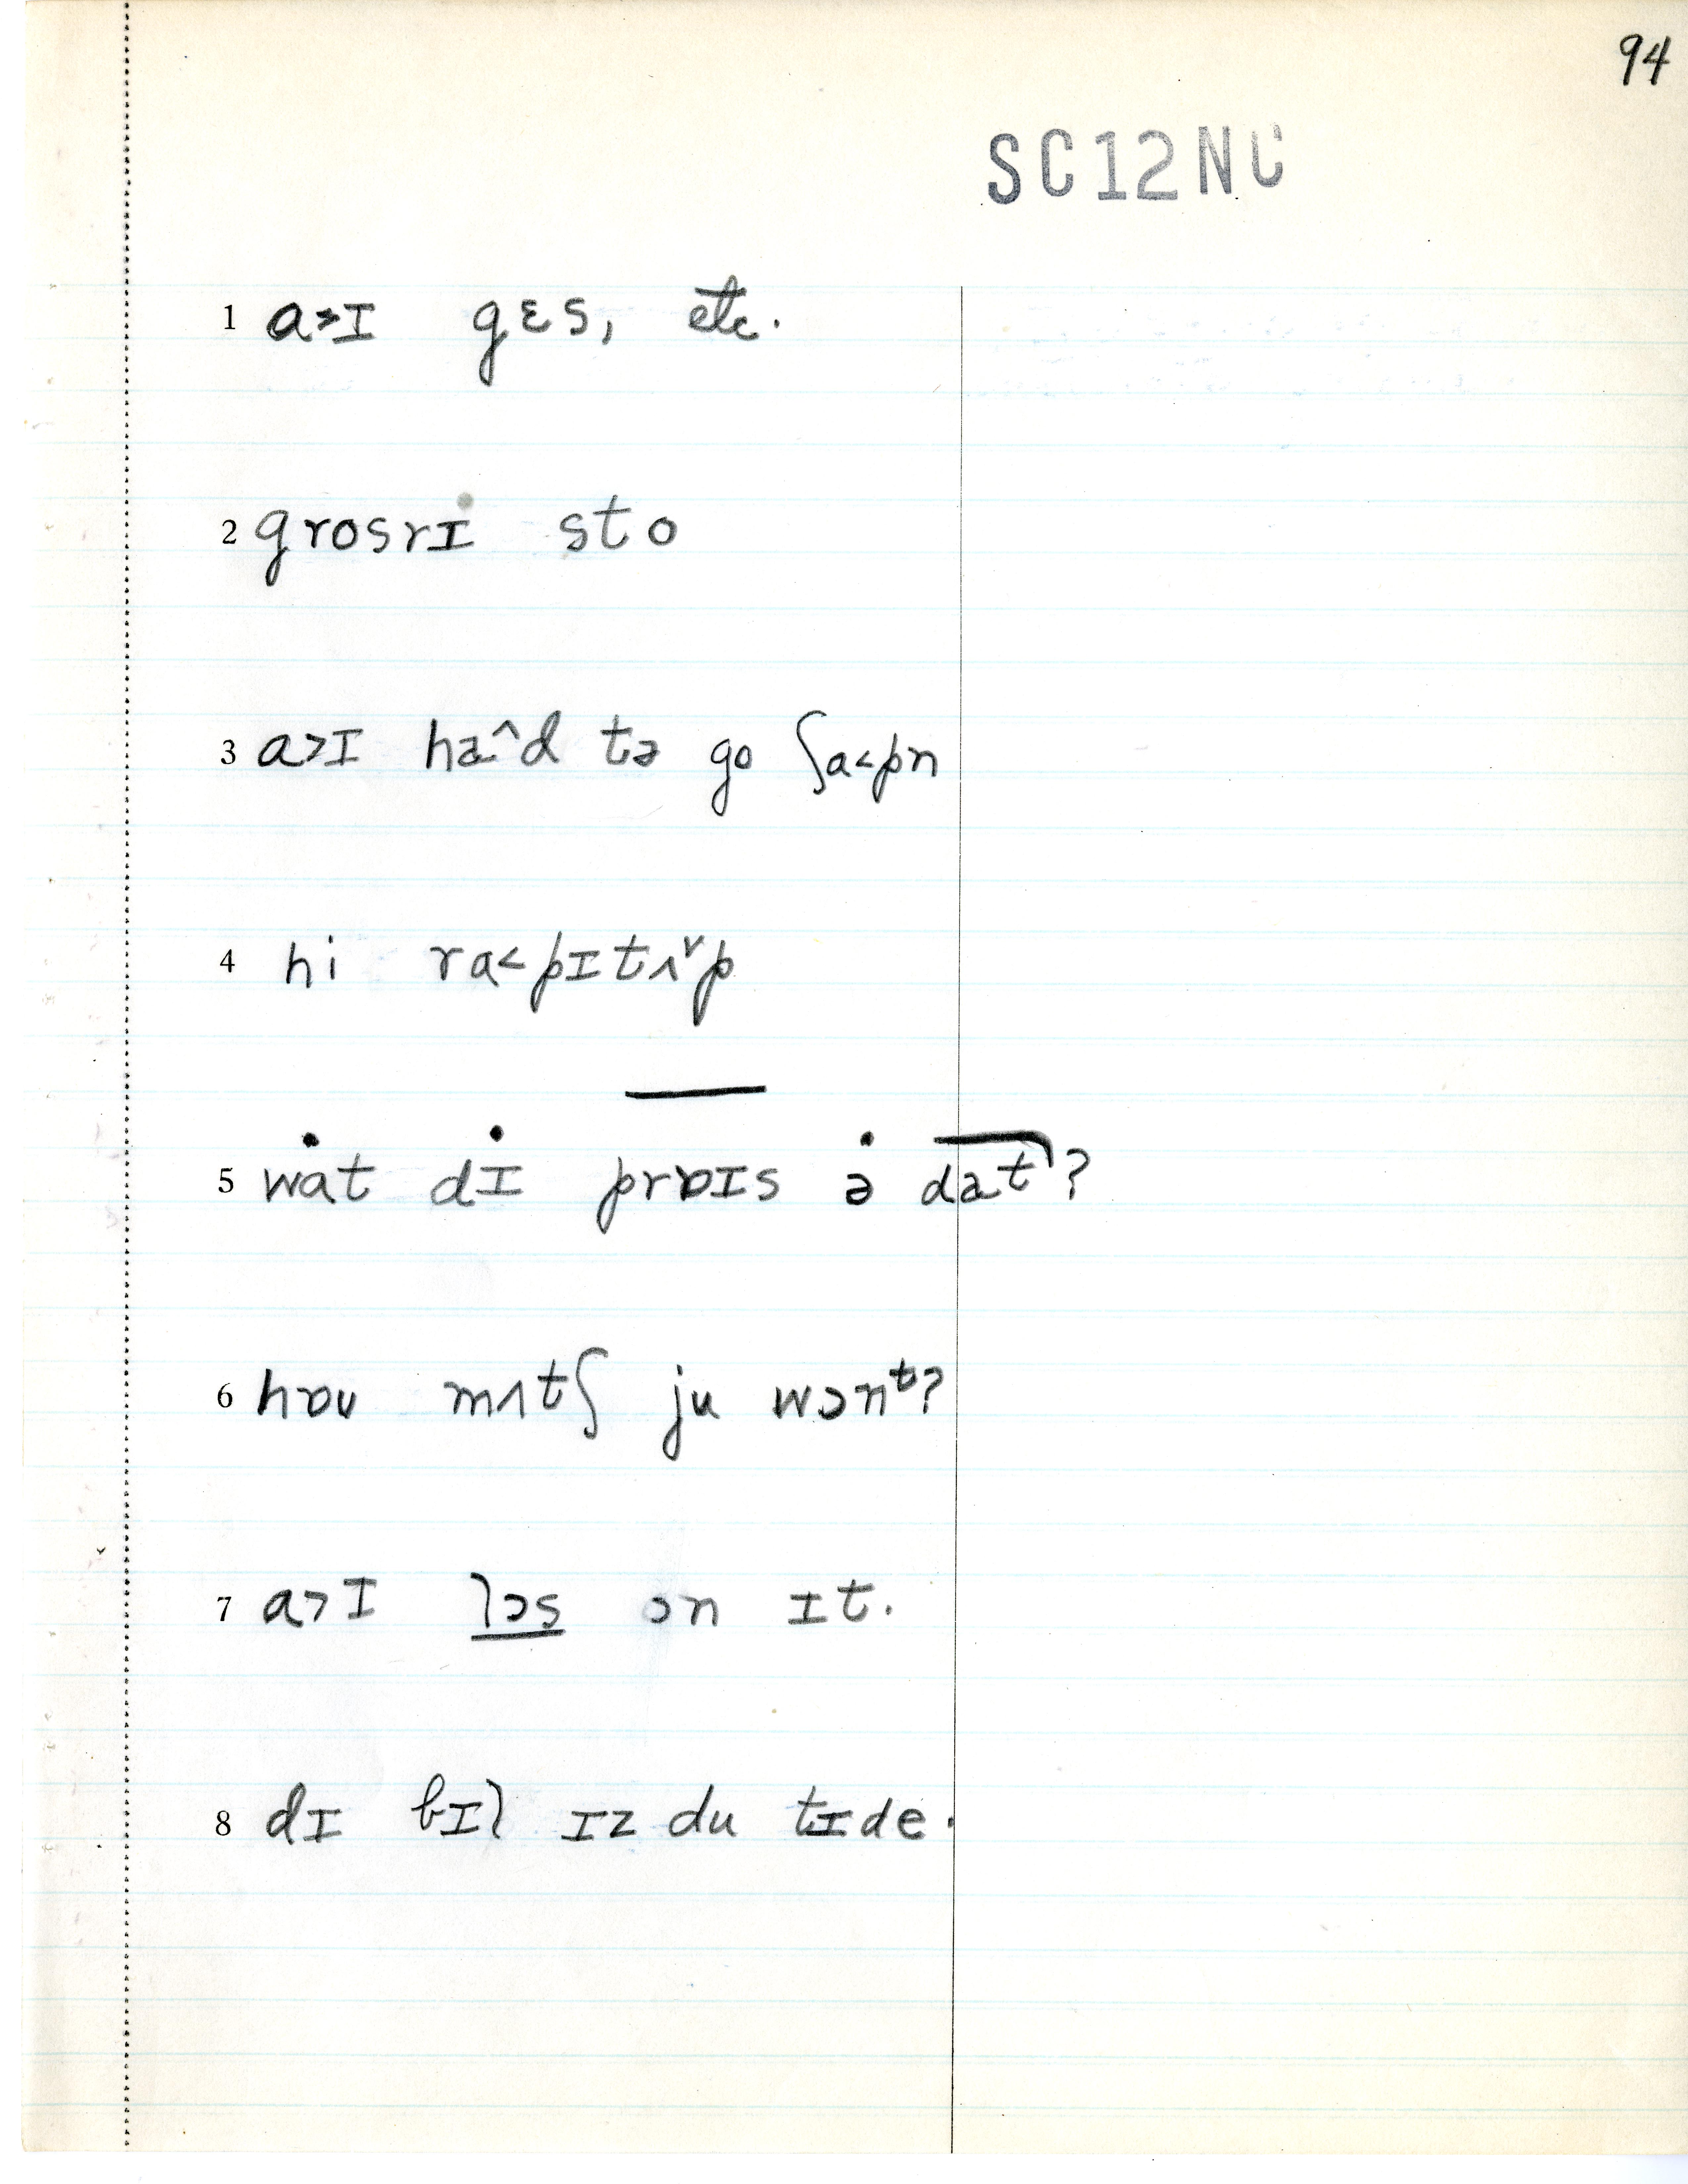 94
SC12NC
1 a>ɪ gɛs, etc.
2 grosrɪ sto
3 a>ɪ ha^d tə go ʃa<pn
4 hi ra<pɪtʌ˅p
5 wat dɪ prɒɪs ə dat?
6 hɒu mʌtʃ ju wɔnᵗ?
7 a>ɪ lɔs ɔn ɪt.
8 dɪ bɪl ɪz du tɪde.